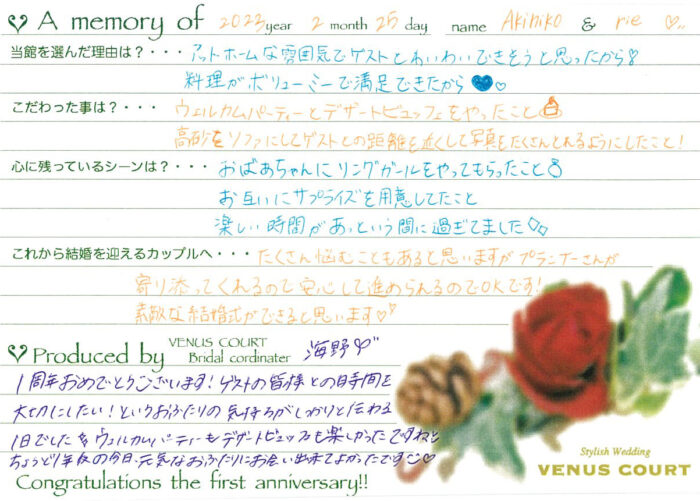 A memory of 2023 year 2 month 25 day name Akihiko & rie
当館を選んだ理由は?・・・アットホームな雰囲気でゲストとわいわいできそうと思ったから
料理がボリューミーで満足できたから
こだわった事は?・・・ウェルカムパーティーとデザートビュッフェをやったこと
高砂をソファにしてゲストとの距離を近くして写真をたくさんとれるようにしたこと!
心に残っているシーンは?・・・おばあちゃんにリングガールをやってもらったこと
お互いにサプライズを用意してたこと
楽しい時間があっという間に過ぎてました
これから結婚を迎えるカップルへ・・・たくさん悩むこともあると思いますがプランナーさんが
寄り添ってくれるので安心して進められるのでOKです!
素敵な結婚式ができると思います♡
Produced by VENUS COURT Bridal cordinater 海野
1周年おめでとうございます!ゲストの皆様との時間を
大切にしたい!というおふたりの気持ちがしっかりと伝わる
1日でした ウェルカムパーティーもデザートビュッフェも楽しかったですね
ちょうど1年後の今日、元気なおふたりにお会い出来てよかったです♡
Congratulations the first anniversary!!
Stylish Wedding
VENUS COURT